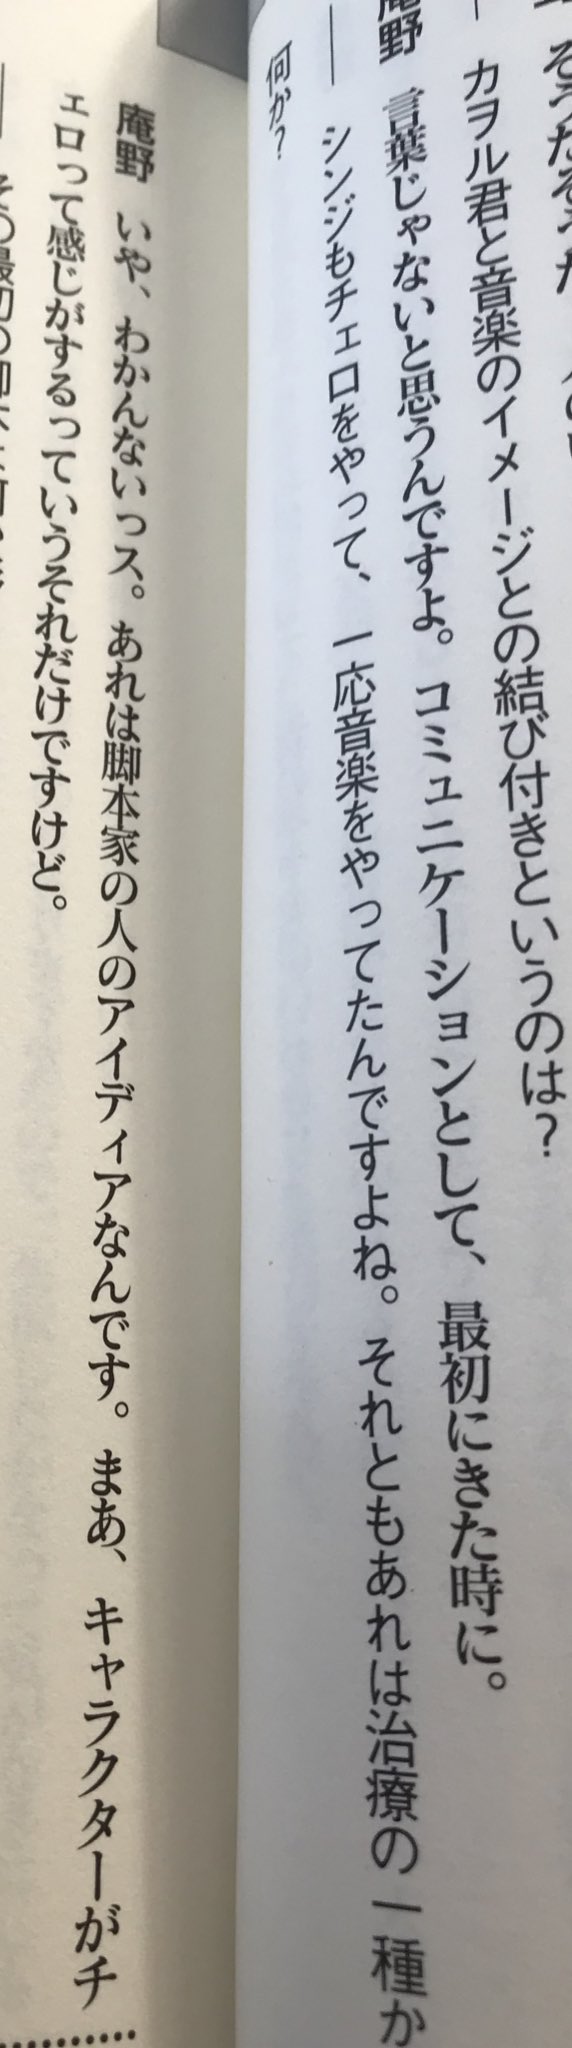 ── カヲル君と音楽のイメージとの結び付きというのは？
庵野　言葉じゃないと思うんですよ。コミュニケーションとして、最初にきた時に。
── シンジもチェロをやって、一応音楽をやってたんですよね。それともあれは治療の一種か
何か？
庵野　いや、わかんないっス。あれは脚本家の人のアイディアなんです。まあ、キャラクターがチ
ェロって感じがするっていうそれだけですけど。